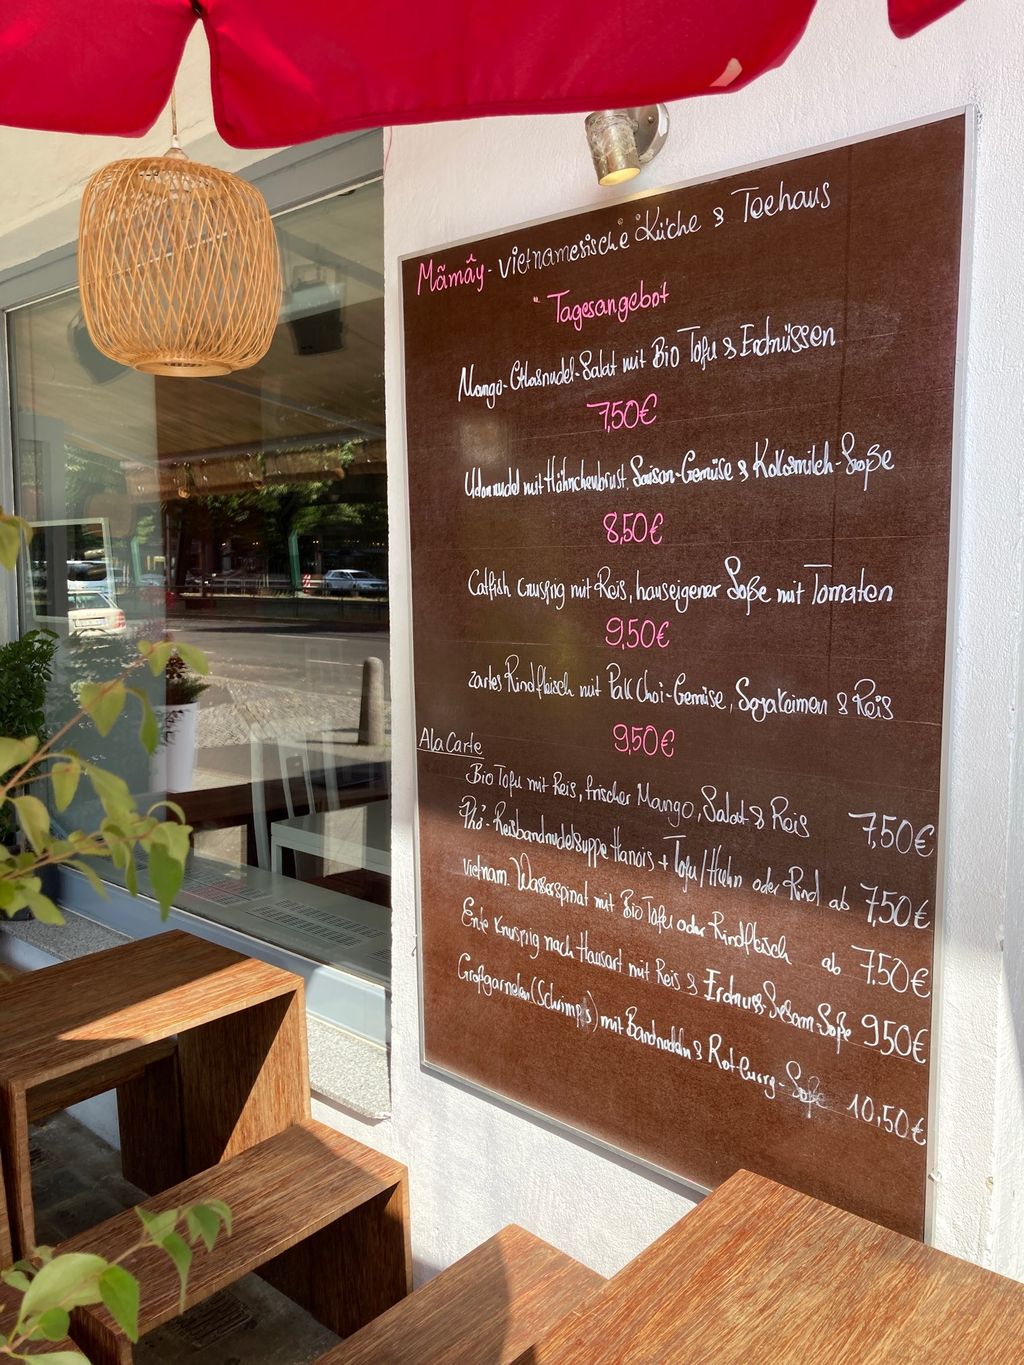 Mãmây - vietnamesische Küche & Teehaus
Tagesangebot
Mango-Glasnudel-Salat mit Bio Tofu & Erdnüssen
7,50€
Udonnudel mit Hähnchenbrust, Saison-Gemüse & Kokosmilch-Soße
8,50€
Catfish knusprig mit Reis, hauseigener Soße mit Tomaten
9,50€
zartes Rindfleisch mit Pak Choi-Gemüse, Sojakeimen & Reis
9,50€
A la Carte
Bio Tofu mit Reis, frischer Mango, Salat & Reis 7,50€
Phở - Reisbandnudelsuppe Hanois + Tofu/Huhn oder Rind ab 7,50€
vietnam. Wasserspinat mit Bio Tofu oder Rindfleisch ab 7,50€
Ente knusprig nach Hausart mit Reis & Erdnuss-Sesam-Soße 9,50€
Großgarnelen (Schrimps) mit Bandnudeln & Rot-Curry-Soße 10,50€